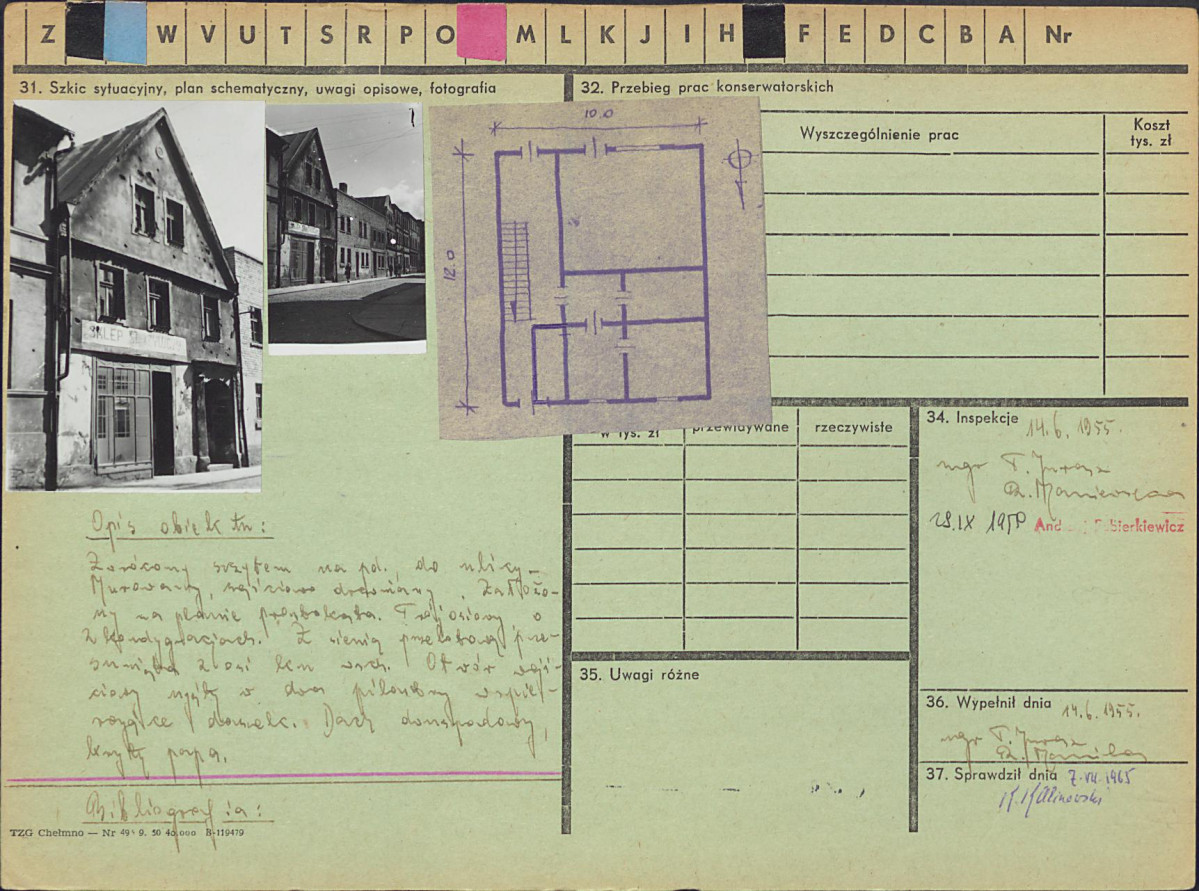 Z W V U T S R P O M L K J I H F E D C B A Nr
31. Szkic sytuacyjny, plan schematyczny, uwagi opisowe, fotografia
32. Przebieg prac konserwatorskich
Wyszczególnienie prac
Koszt
tys. zł
10.0
12.0
SKLEP
w tys. zł
przewidywane
rzeczywiste
34. Inspekcje
14.6.1955.
mgr T.
Opis obiektu:
Zwrócony szczytem na pd., do ulicy.
Murowany, drewniany. Założo-
ny na planie prostokąta. Trójosiowy o
2 kondygnacjach. Z sienią przelotową prze-
suniętą z osi ku wsch. Otwór wejś-
ciowy ujęty w dwa pilastry
daszek. Dach dwuspadowy,
kryty papą.
Bibliografia:
35. Uwagi różne
36. Wypełnił dnia 14.6.1955.
mgr T.
37. Sprawdził dnia 7.VII.1965
K. Kalinowski
TZG Chełmno — Nr 9. 50 40.000 B-119479